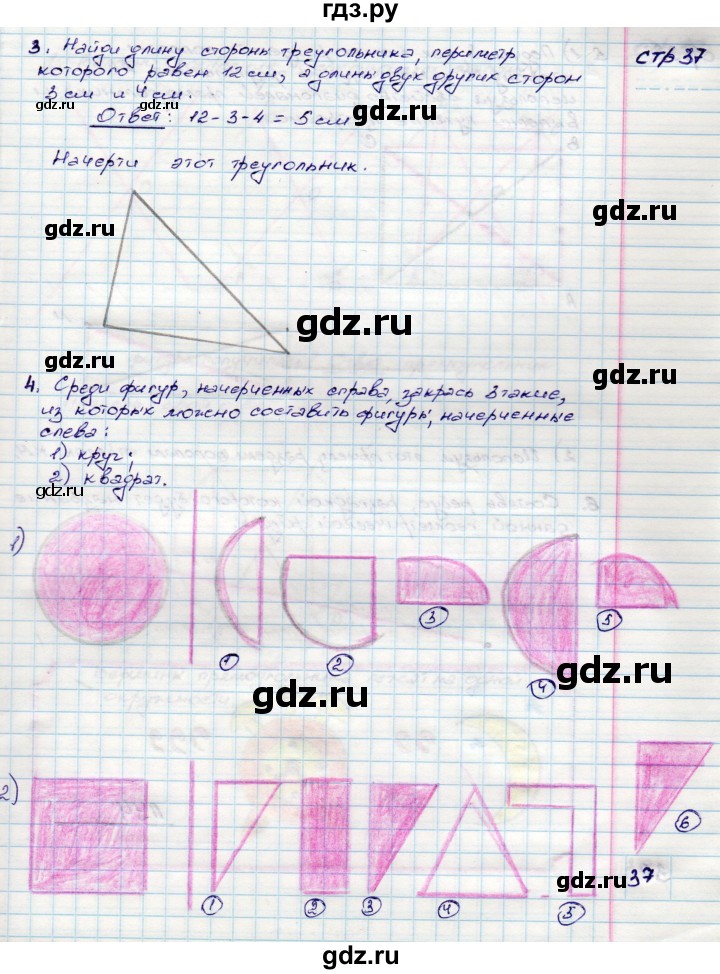 гдз.ру
3. Найди длину стороны треугольника, периметр
которого равен 12 см, а длины двух других сторон
3 см и 4 см.
Ответ: 12-3-4=5 см
стр 37
gdz.ru
gdz.ru
gdz.ru
Начерти этот треугольник.
gdz.ru
gdz.ru
gdz.ru
gdz.ru
4. Среди фигур, начерченных справа, закрась 3 такие,
из которых можно составить фигуры, начерченные
слева:
1) круг;
2) квадрат.
gdz.ru
gdz.ru
gdz.ru
1)
1
2
3
4
5
gdz.ru
gdz.ru
2)
1
2
3
4
5
6
gdz.ru
37
gdz.ru
gdz.ru